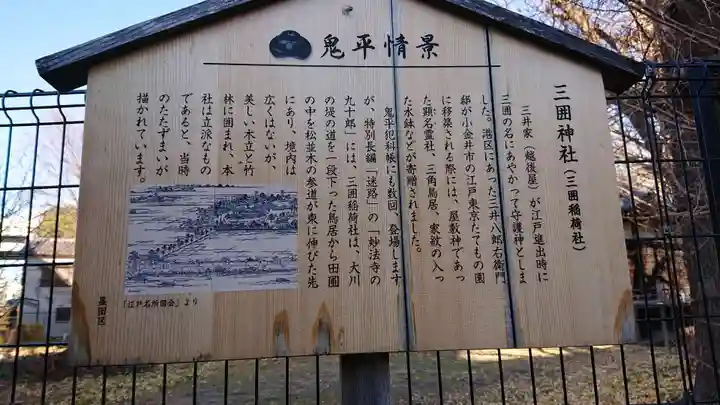 鬼平情景
三囲神社（三囲稲荷社）
三井家（越後屋）が江戸進出時に
三囲の名にあやかって守護神としま
した。港区にあった三井八郎右衛門
邸が小金井市の江戸東京たてもの園
に移築される際には、屋敷神であっ
た顕名霊社、三角鳥居、家紋の入っ
た水鉢などが寄贈されました。
鬼平犯科帳にも数回、登場します
が、特別長編「迷路」の「妙法寺の
九十郎」には、三囲稲荷社は、大川
の堤の道を一段下った鳥居から田圃
の中を松並木の参道が東に伸びた先
にあり、境内は
広くはないが、
美しい木立と竹
林に囲まれ、本
社は立派なもの
であると、当時
のたたずまいが
描かれています。
「江戸名所図会」より
墨田区